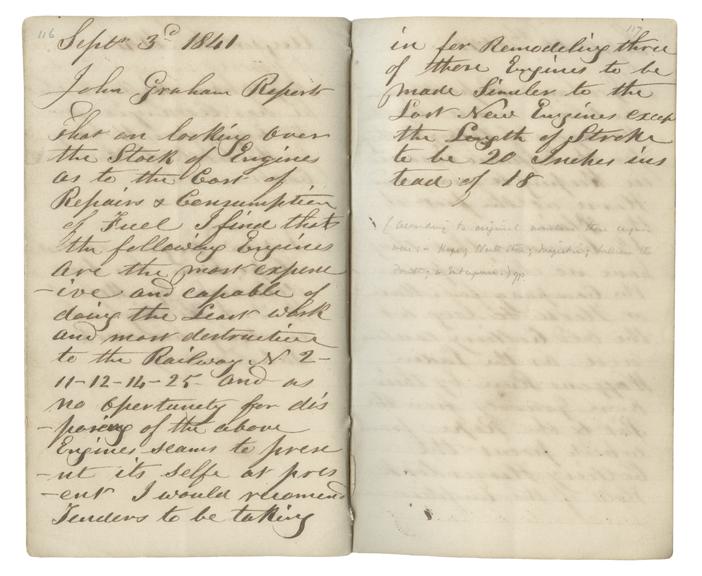 116
Septr 3d 1841
John Graham Report
That on looking over
the Stock of Engines
as to the Cost of
Repairs & Consumption
of Fuel I find that
the following Engines
are the most expens
-ive and capable of
doing the Least work
and most destructive
to the Railway N 2-
11-12-14-25- and as
no opertunity for dis
-posing of the above
Engines seams to prese
-nt its selfe at pres
-ent I would recomend
Tenders to be taking
117
in for Remodeling three
of those Engines to be
made Similer to the
Last New Engines except
the Length of Stroke
to be 20 Inches ins
tead of 18
(according to original these engines